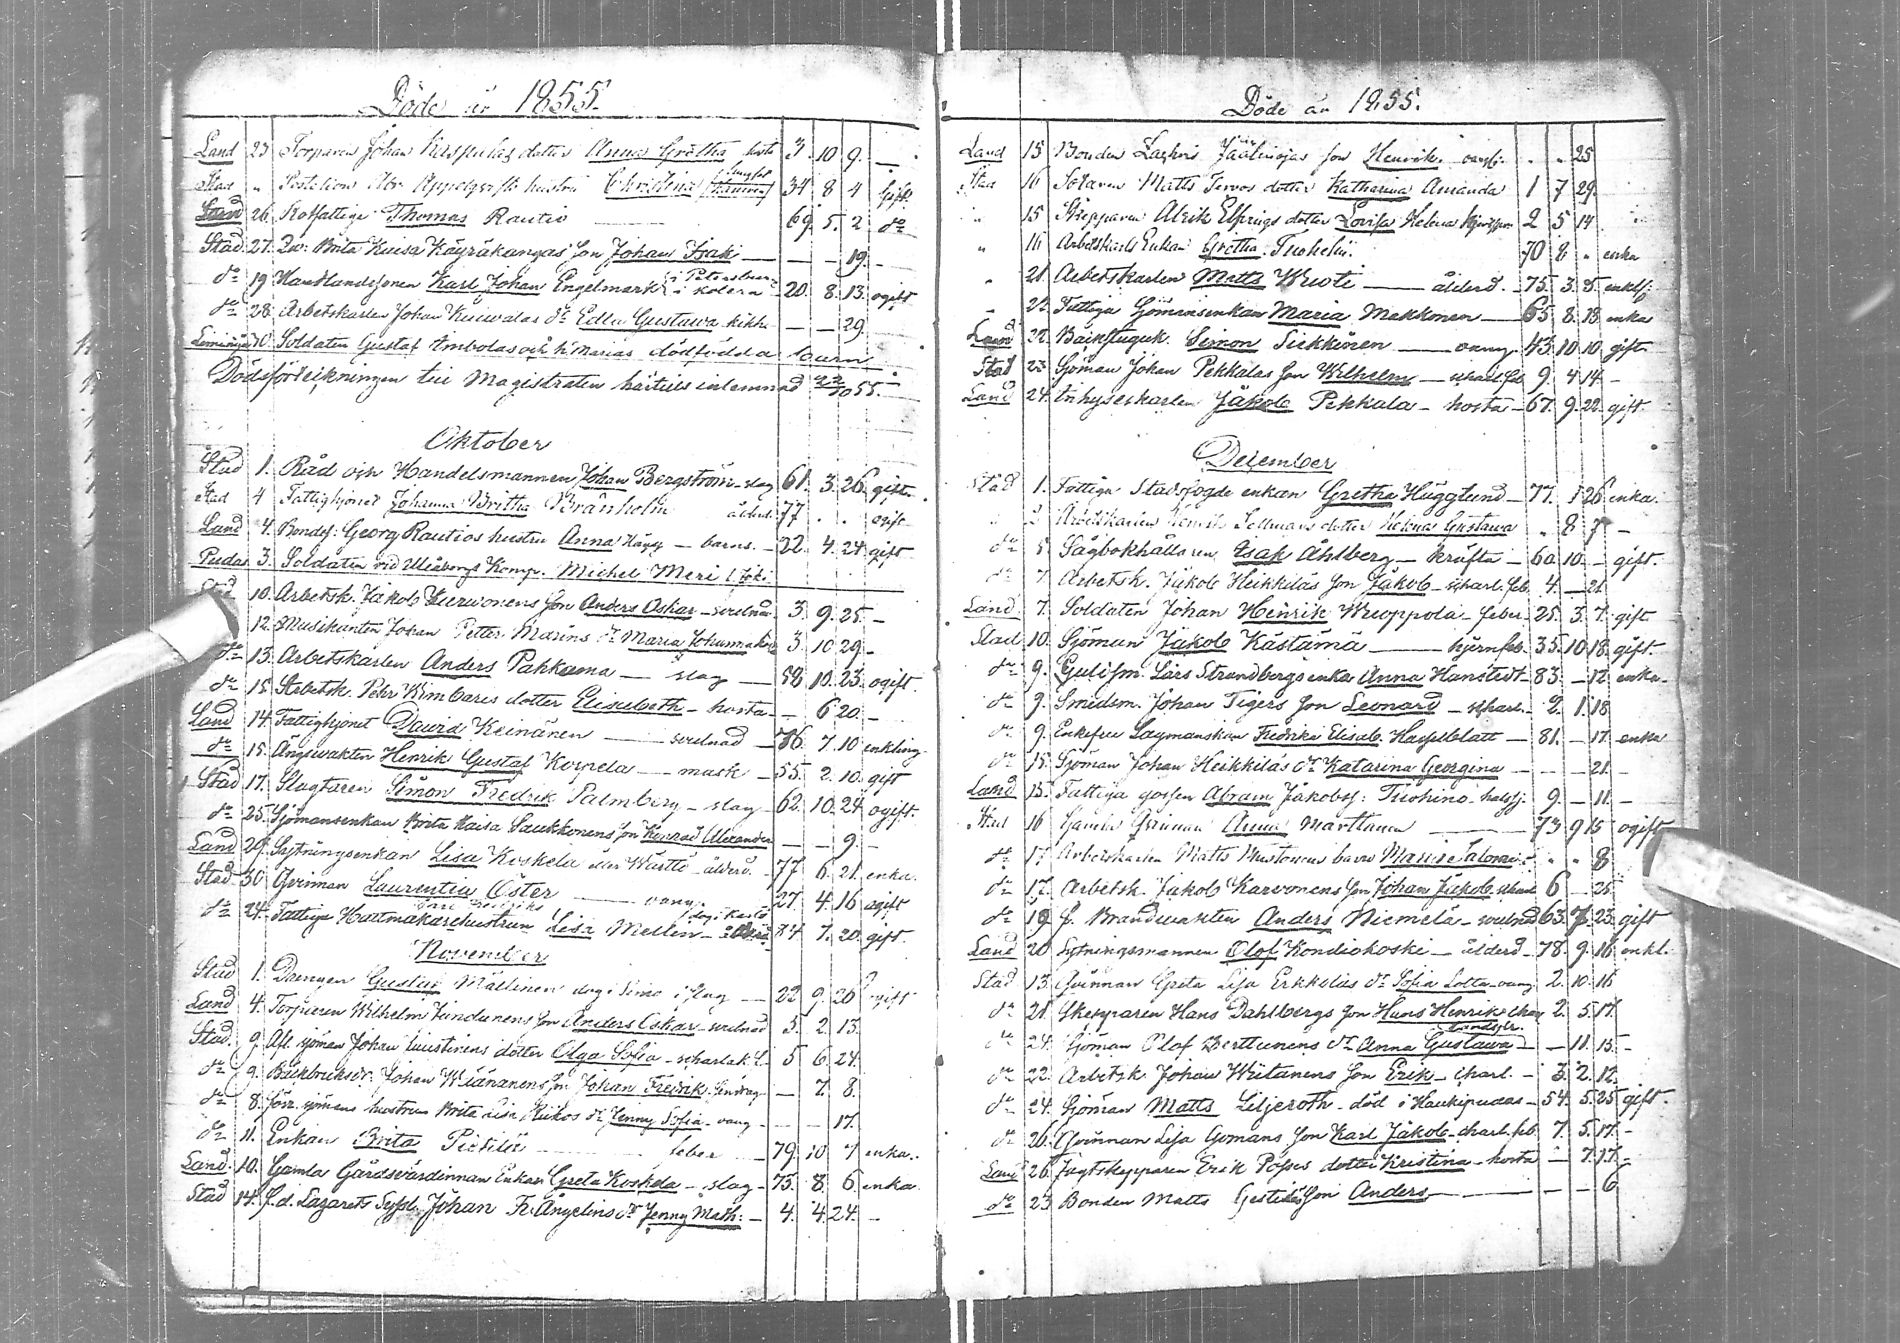 Döde år 1855.
Land 23 Torparen Johan dotter Anna Gretha 3. 10 9. —
Stad " Postilion Abr. Appelgréns hustru Christina 34 8 4 Gift.
Land 26 Rotfattige Thomas Rautio 69. 5. 2. do
Stad 27. Brita Kaisa Käyräkangas Son Johan Isak — — — 19. —
do 19 Handlandesonen Karl Johan Engelmark i Petersburg i kolera 20. 8. 13. ogift
do 28. Arbetskarlen Johan dr Edla Gustawa kikh — — 29
Limingo 10. Soldaten Gustaf och h. Marias dödfödda barn
Dödsförteckningen till Magistraten härtills inlemnad 22/10 55.
Oktober
Stad 1. Råd och Handelsmannen Johan Bergström - slag 61. 3. 26. gift.
Stad 4 Fattighjonet Johanna Britha Brånholm ålderd. 77 . . ogift
Land 4. Bondes: Georg Rautios hustru Anna — barns. — 22. 4. 24 gift
Pudas 3. Soldaten vid Uleåborgs Komp. Michel Meri
Stad 10. Arbetsk. Jakob son Anders Oskar - svulnad. 3. 9. 25. —
12. Musikanten Johan Petter Maríns dr Maria Johanna 3 10 29. —
do 13. Arbetskarlen Anders Pahkama — slag — 58 10. 23. ogift
do 15. Arbetsk. Pehr Kimbaris dotter Elisabeth — hosta — — 6 20. —
Land 14. Fattighjonet David Keinänen — svulnad — 76 7. 10 enkling
do 15. Ängswakten Henrik Gustaf Korpela — mask — 55. 2. 10. gift
Stad 17. Slagtaren Simon Fredrik Palmberg — slag — 62. 10. 24 ogift.
do 25. Sjömansenkan Brita Kaisa Saukkonens son Konrad Alexander — — 9. —
Land 29. Sytningsenkan Lisa Koskela eller Wuotti - ålderd. 77 6 21. enka.
Stad 30 Qvinnan Laurentia Öster 27 4. 16 ogift
do 24. Fattige Hattmakarehustrun Lisa Mellen — 74 7. 20. gift.
November
Stad 1. Drengen Gustaf Mällinen dog i Simo i slag — 22 9. 26 ogift
Land 4. Torparen Wilhelm son Anders Oskar - svulnad 5. 2. 13.
Stad. 9. Afl. sjöman Johan dotter Olga Sofia - scharlak. f. 5 6 24.
do 9. Johan Wäänänens son Johan Fredrik — 2. 8.
do 8. sjömans hustrun Brita Lisa dr Jenny Sofia — — — 17.
do 11. Enkan Brita Pietilä — feber — 79. 10 7 enka.
Land. 10. Gamla Gårdsvärdinnan Enkan Greta Koskela — slag — 75. 8. 6. enka.
Stad 14. f.d. Lazarets Syssl. Johan Fr. Ångelins dr Jenny Math: — 4. 4. 24. —
Döde år 1855.
Land 15 Bonden Zachris Jäälinojas son Henrik . " 25
Stad 16 Matts Tervos dotter Katharina Amanda 1 7 29.
" 15 Skepparen dotter Lovisa Helena 2 5 14.
" 16 Arbetskarls Enkan Gretha Tuohelin. 70 8 " enka
" 21. Arbetskarlen Matts Wuoti — ålderd. — 75. 3. 5. enkl:
" 22. Fattiga Sjömansenkan Maria Makkonen — 65 8. 18. enka
Land 22. Simon Sirkkinen 43. 10 10. gift
Stad 23 Sjöman Johan Pekkalas son Wilhelm — scharl. feb. 9. 4 14 —
Land 24. Inhyseskarlen Jakob Pekkala — hosta — 67. 9. 22. gift.
December
Stad 1. Fattiga Stadsfogde enkan Gretha Hägglund — 77. 1 26 enka.
2 Arbetskarlen Sellmans dotter Helena Gustawa " 8 7 —
do 5. Sågbokhållaren Isak Åhlberg — kräfta — 60. 10. — gift.
do 7. Arbetsk. Jakob Heikkiläs son Jakob — scharl. feb. 4. — 21.
Land 7. Soldaten Johan Henrik Wuoppola — feber 25. 3. 7. gift
Stad 10. Sjöman Jakob Kästämä — hjernfeb. 35. 10 18. gift.
do 9. Guldsm. Lars Strandbergs enka Anna Hanstedt — 83. — 12 enka.
do 9. Smedsm. Johan Tigers son Leonard — scharl. — 2. 1. 18
do 9. Enkefru Fredrika Elisab. Hasselblatt — 81. — 17 enka
do 15. Sjöman Johan Heikkiläs dr Katarina Georgina — — — 21. —
Land 15. Fattiga gossen Abram Jakobss: Tuohino — halssj. 9. — 11. —
Stad 16 Gamla Qvinnan Anna Marttanen 73 9 15 ogift
do 17. Arbetskarlen Matts Mustonens barn Maria Salome . " " 8
do 17. Arbetsk. Jakob Karvonens son Johan Jakob 6 — 25
do 19 f. Brandwakten Anders Niemelä — svulnad 63. 7. 23. gift
Land 20 Sytningsmannen Olof Kondiokoski — ålderd — 78. 9. 16 enkl.
Stad 13. Qvinnan Greta Lisa Erkkiläs dr Sofia Lotta 2. 10. 16
do 21. Skepparen Hans Dahlbergs son Hans Henrik 2. 5. 17.
do 24. Sjöman Olof Berttunens dr Anna Gustawa — — 11. 15. —
do 22. Arbetsk. Johan Wiitanens son Erik — scharl. — 3. 2. 12.
do 24. Sjöman Matts Liljeroth — död i Haukipudas — 54. 5. 25 gift.
do 26. Qvinnan Lisa Gomans son Karl Jakob — scharl. feb. 7. 5. 17. —
Land 26. Jagtskepparen Erik Posses dotter Kristina — hosta — 7. 17. —
do 23 Bonden Matts son Anders — — — 6